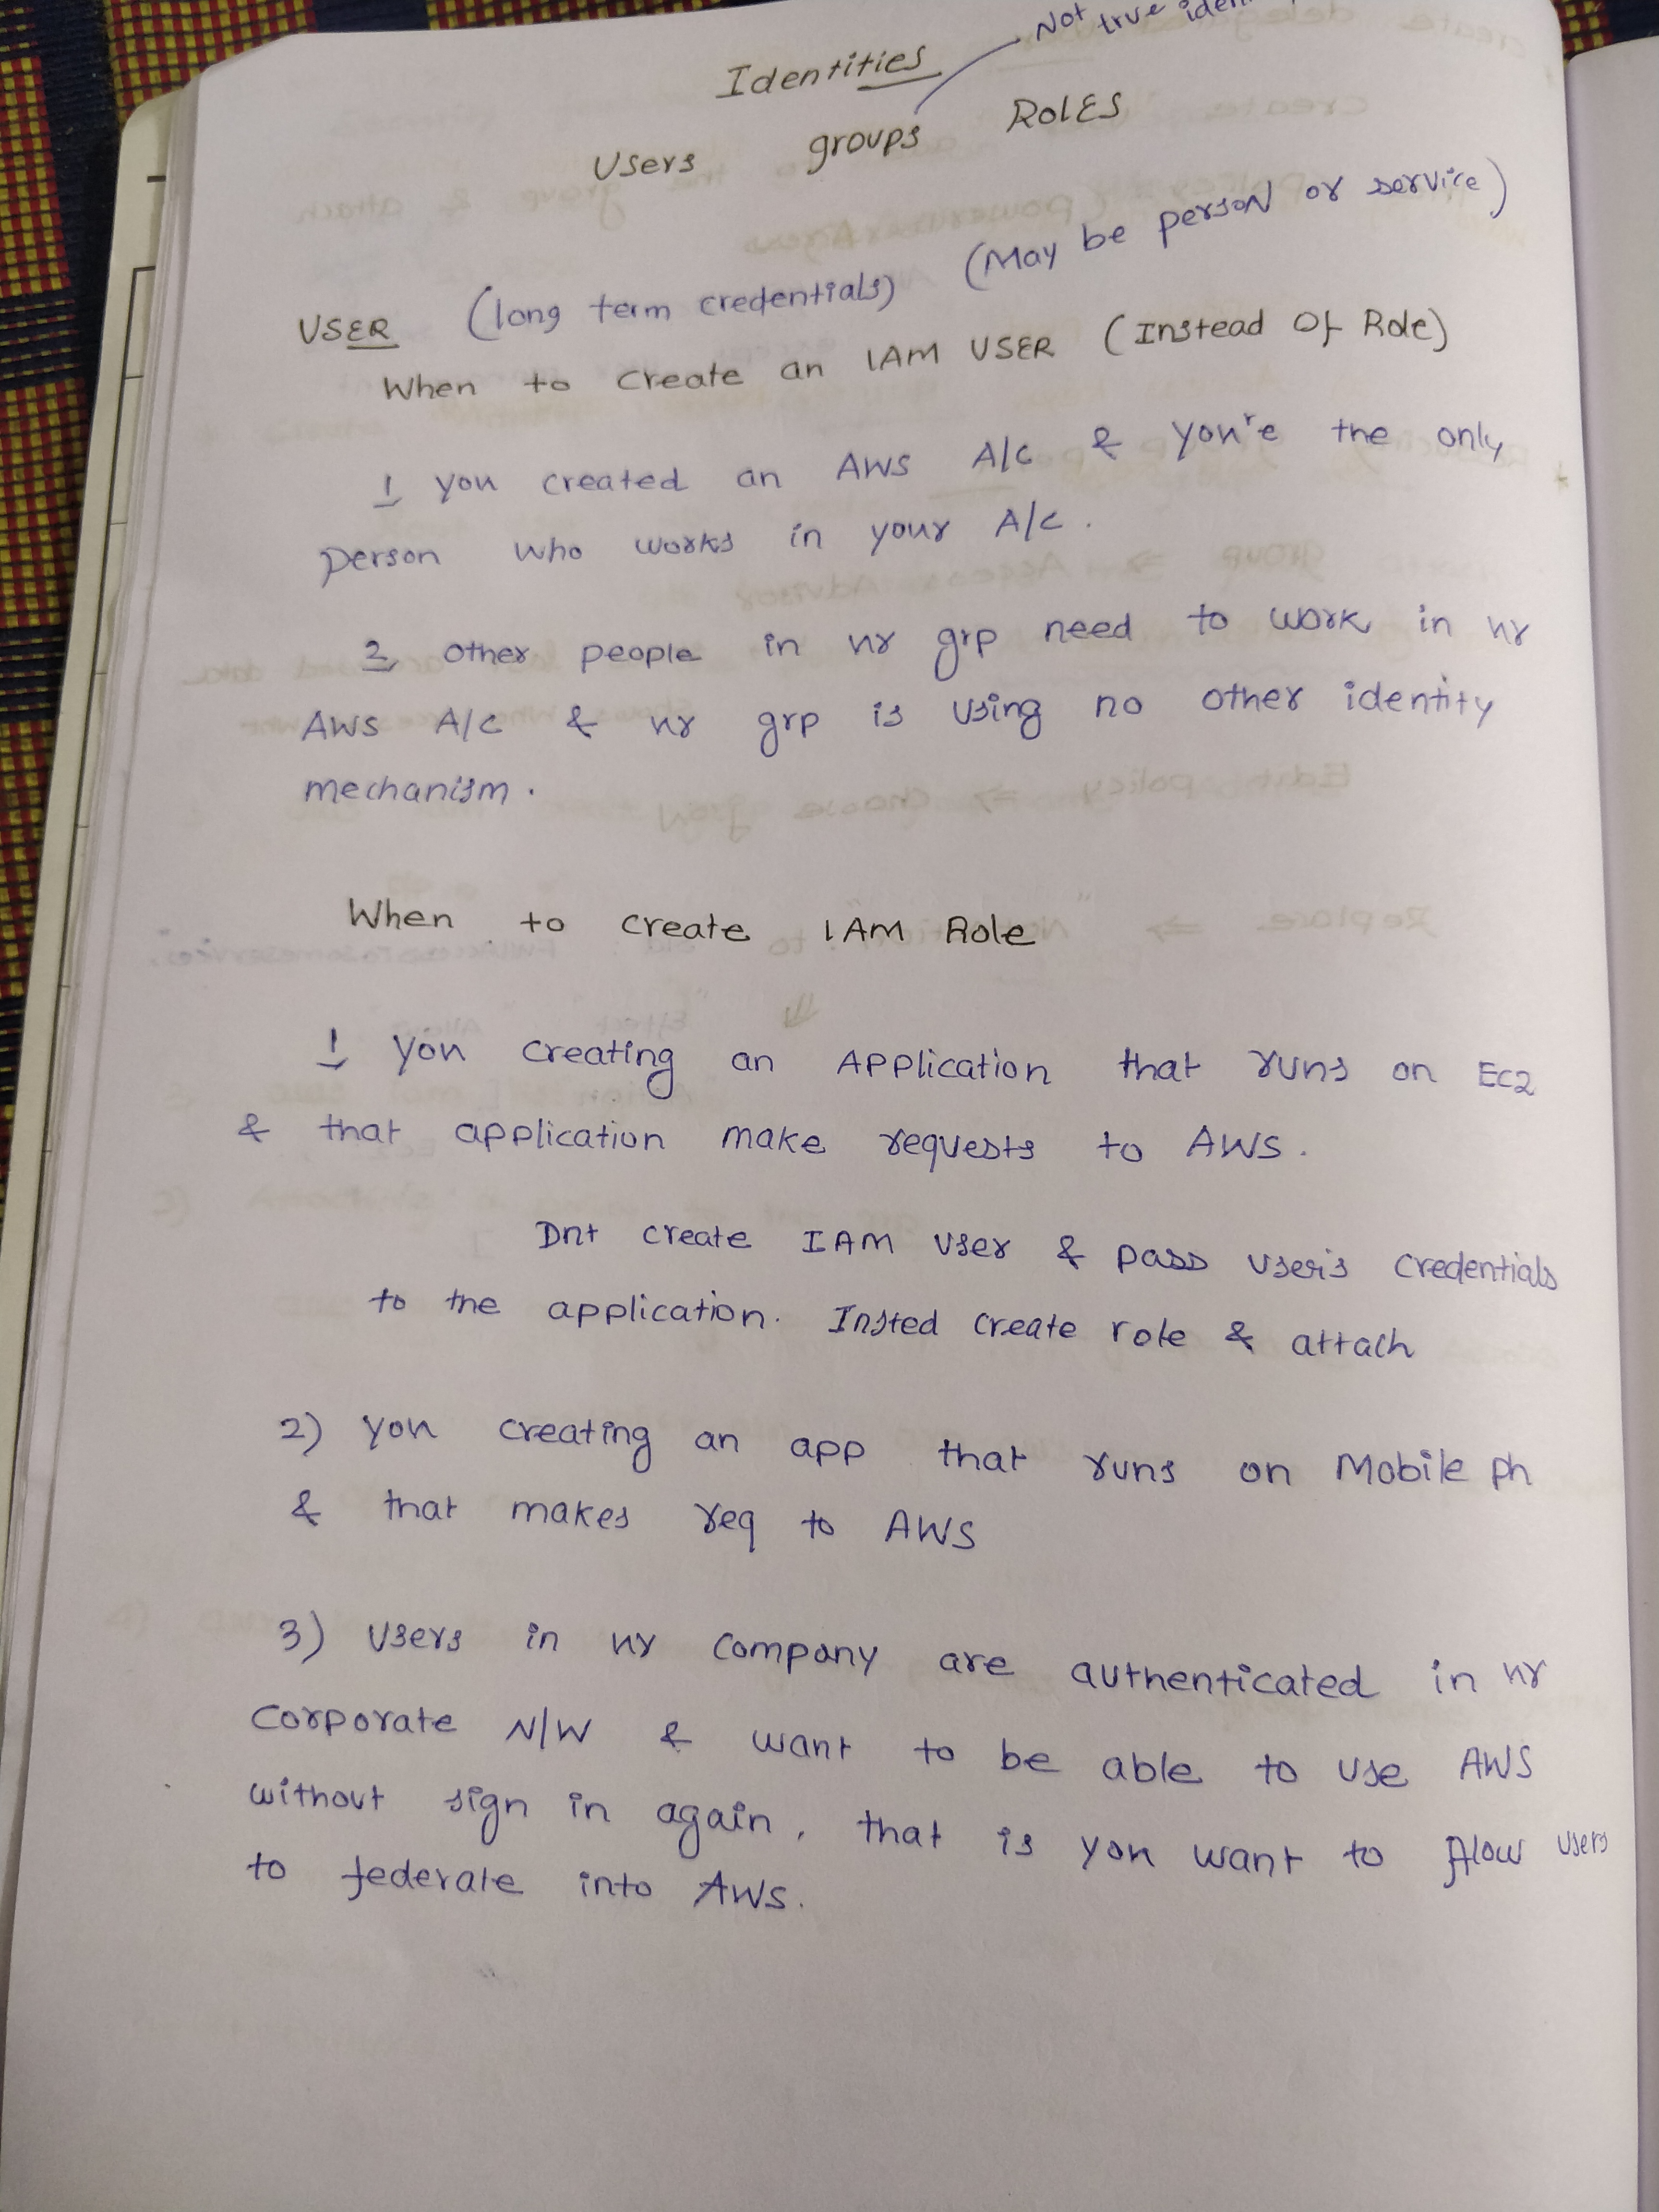 Not true
Identities
Users groups ROLES
USER (long term credentials) (May be person or service)
When to create an IAM USER (Instead Of Role)
1 you created an AWS A/C & you're the only
person who works in your A/C.
2 other people in ur grp need to work in ur
AWS A/C & ur grp is using no other identity
mechanism.
When to create IAM Role
1 you creating an Application that runs on Ec2
& that application make requests to AWS.
Dnt create IAM user & pass user's credentials
to the application. Insted create role & attach
2) you creating an app that runs on Mobile ph
& that makes req to AWS
3) users in ur company are authenticated in ur
corporate N/W & want to be able to use AWS
without sign in again, that is you want to allow users
to federate into AWS.